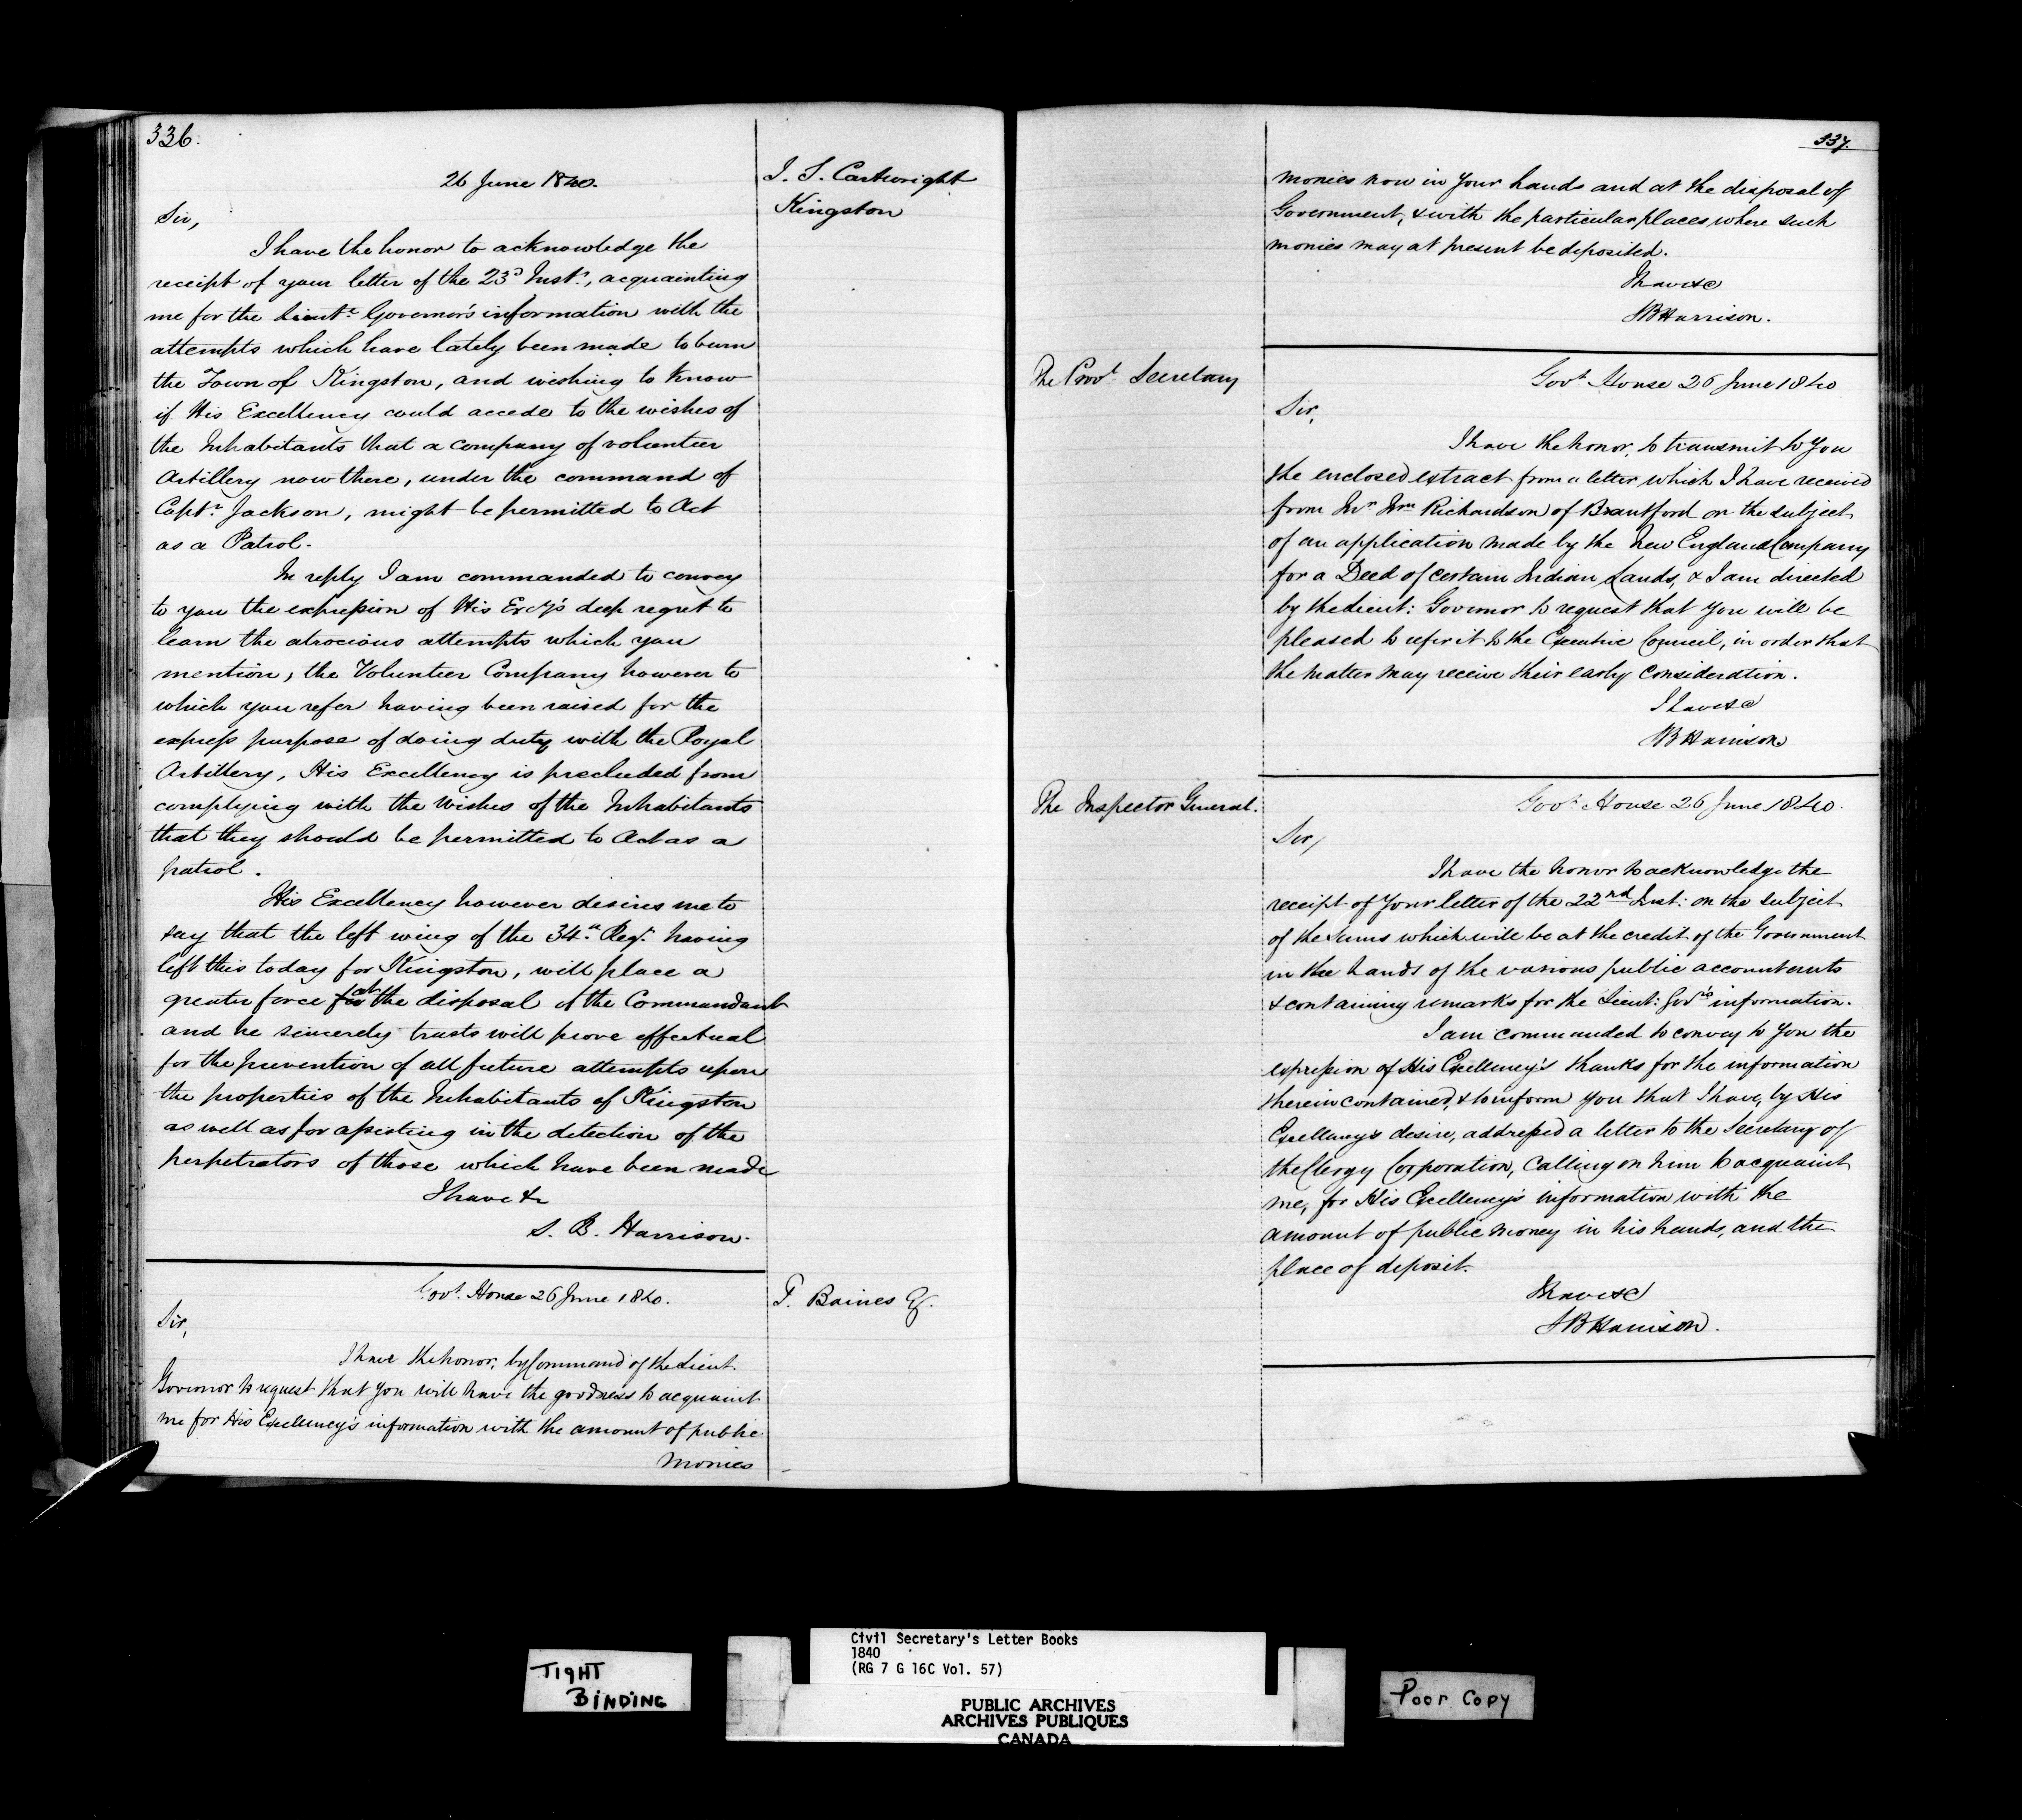 336.
26 June 1840.
J. S. Cartwright
Kingston
Sir,
I have the honor to acknowledge the
receipt of your letter of the 23d Inst., acquainting
me for the Lieut. Governor's information with the
attempts which have lately been made to burn
the Town of Kingston, and wishing to know
if His Excellency could accede to the wishes of
the Inhabitants that a company of volunteer
Artillery now there, under the command of
Captn. Jackson, might be permitted to Act
as a Patrol.
In reply I am commanded to convey
to you the expression of His Excy's deep regret to
learn the atrocious attempts which you
mention, the Volunteer Company however to
which you refer having been raised for the
express purpose of doing duty with the Royal
Artillery, His Excellency is precluded from
complying with the Wishes of the Inhabitants
that they should be permitted to Act as a
patrol.
His Excellency however desires me to
say that the left wing of the 34th Regt. having
left this today for Kingston, will place a
greater force at the disposal of the Commandant
and he sincerely trusts will prove effectual
for the prevention of all future attempts upon
the properties of the Inhabitants of Kingston
as well as for assisting in the detection of the
perpetrators of those which have been made
I have &c
S. B. Harrison.
Govt. House 26 June 1840.
T. Baines Esq.
Sir,
I have the honor, by Command of the Lieut.
Governor to request that you will have the goodness to acquaint
me for His Excellency's information with the amount of public
Monies
337.
monies now in your hands and at the disposal of
Government, & with the particular places where such
monies may at present be deposited.
I have &c
SB Harrison.
The Provl. Secretary
Govt. House 26 June 1840
Sir,
I have the honor, to transmit to You
the enclosed extract from a letter which I have received
from Mr. Wm Richardson of Brantford on the subject
of an application made by the New England Company
for a Deed of certain Indian Lands, & I am directed
by the Lieut: Governor to request that you will be
pleased to refer it to the Executive Council, in order that
the matter may receive their early consideration.
I have &c
SB Harrison
The Inspector General.
Govt. House 26 June 1840.
Sir,
I have the honor to acknowledge the
receipt of Your letter of the 22nd Inst: on the subject
of the Sums which will be at the credit of the Government
in the hands of the various public accountants
& containing remarks for the Lieut: Govr's information.
I am commanded to convey to You the
expression of His Excellency's thanks for the information
therein contained, & to inform you that I have, by His
Excellency's desire, addressed a letter to the Secretary of
the Clergy Corporation, Calling on him to acquaint
me, for His Excellency's information with the
amount of public money in his hands, and the
place of deposit.
I have &c
SB Harrison.
TIGHT
BINDING
Civil Secretary's Letter Books
1840
(RG 7 G 16C Vol. 57)
PUBLIC ARCHIVES
ARCHIVES PUBLIQUES
CANADA
Poor Copy